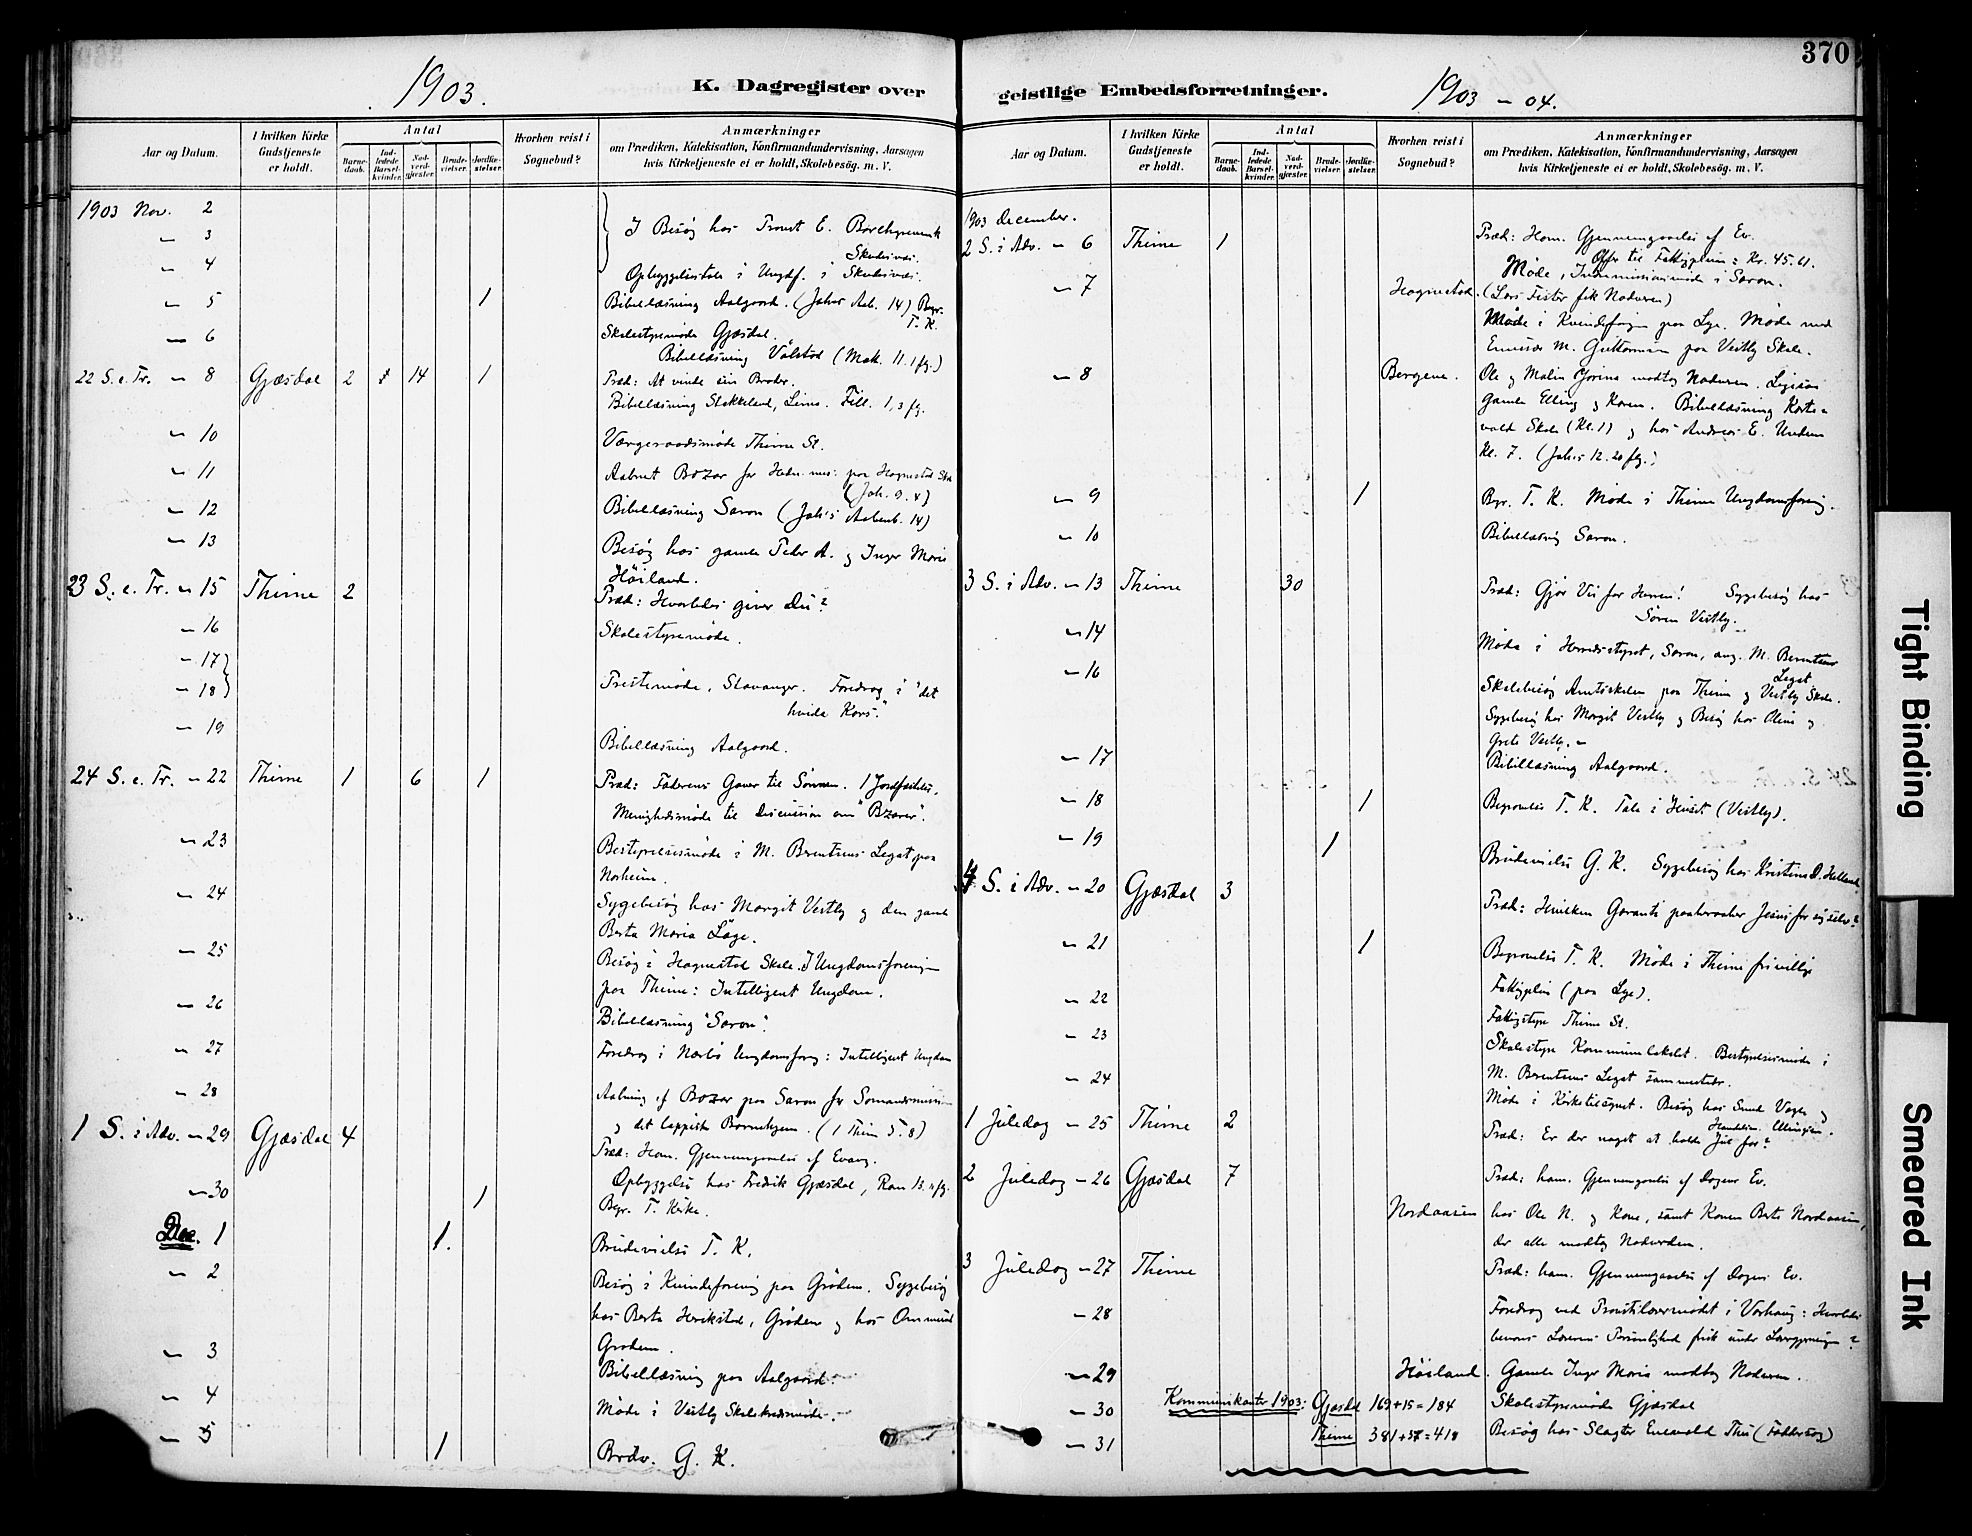 370
1903.
K. Dagregister over
Aar og Datum.
I hvilken Kirke Gudstjeneste er holdt.
Antal
Barne-daab.
Ind-ledede Barsel-kvinder.
Nad-verd-gjæster.
Brude-vielser.
Jordfæ-stelser.
Hvorhen reist i Sognebud?
Anmærkninger
om Prædiken, Katekisation, Konfirmandundervisning, Aarsagen
hvis Kirketjeneste ei er holdt, Skolebesøg. m. V.
1903 Nov. 2
" 3 I Besøg hos Provst E.
" 4 Opbyggelsestale i Ungdf. i
" 5 1 Bibellæsning Aalgaard. (Johs Aab. 14) Begr. T. K.
" 6 Skolestyremøde Gjæsdal.
Bibellæsning Vålstad (Matt. 11.1 fg.)
22 S. e. Tr. " 8 Gjæsdal 2 14 1 Præd: At vinde sin Broder.
Bibellæsning Stokkeland, Fill. 1,3 fg.
" 10 Værgeraadsmøde Thime St.
" 11 Aabnet Bazar for Hedn. mis: paa Hognestad
(Joh. 9. 4)
" 12 Bibellæsning Saron (Joh's Aabenb. 14)
" 13 Besøg hos gamle Peder A. og Inger Maria
Høiland.
23 S. e. Tr. " 15 Thime 2 Præd: Hvorledes giver du?
" 16 Skolestyremøde.
" 17
" 18 Prestemøde, Stavanger. Foredrag i "det
hvide Kors."
" 19 Bibellæsning Aalgaard.
24 S. e. Tr. " 22 Thime 1 6 1 Præd: Faderens Gaver til Sønnen. 1 Jordfæstelse.
Menighedsmøde til Discussion om "Bazarer".
" 23 Bestyrelsesmøde i M. Berentsens Legat paa
Norheim.
" 24 Sygebesøg hos Margit Vestly og den gamle
Berta Maria Lage.
" 25 Besøg i Hognestad Skole. I Ungdomsforening
paa Thime: Intelligent Ungdom.
" 26 Bibellæsning "Saron".
" 27 Foredrag i Nærbø Ungdomsforg: Intelligent Ungdom
" 28 Aabning af Bazar paa Saron for Sømandsmission
og det lappiske Barnehjem. (1 Thim 5. 8)
1 S. i Adv. " 29 Gjæsdal 4 Præd: Hom. Gjennemgaaelse af Evang.
Opbyggelse hos Fredrik Gjæsdal, Rom 13. 11 fg.
" 30 1 Begr. T. Kirke.
Dec. 1 1. Brudevielse T. K.
" 2 Besøg i Kvindeforening paa Grødem. Sygebesøg
hos Berta Herikstad, Grødem og hos Ommund
Grødem.
" 3 Bibellæsning paa Aalgaard.
" 4 Møde i Vestly Skolekredsmøde.
" 5 1 Brdv. G. K.
geistlige Embedsforretninger.
1903 - 04.
Aar og Datum.
I hvilken Kirke Gudstjeneste er holdt.
Antal
Barne-daab.
Ind-ledede Barsel-kvinder.
Nad-verd-gjæster.
Brude-vielser.
Jordfæ-stelser.
Hvorhen reist i Sognebud?
Anmærkninger
om Prædiken, Katekisation, Konfirmandundervisning, Aarsagen
hvis Kirketjeneste ei er holdt, Skolebesøg. m. V.
1903 December.
2 S. i Adv. " 6 Thime 1 Præd: Hom. Gjennemgaaelse af Ev.
Offer til Fattigpleien: Kr. 45.61.
Møde, Indremissionsmøde i Saron.
" 7 Hognestad. (Lars Fister fik Nadveren)
Møde i Kvindeforgn paa Lye. Møde med
M. Guttormsen paa Vestly Skole.
" 8 Bergene. Ole og Malin Gjorina modtog Nadveren. Ligesaa
gamle Elling og Karen. Bibellæsning
Skole (Kl. 1) og hos Andreas E. Undem
Kl. 7. (Joh's 12. 20 flg.)
" 9 1 Bgr. T. K. Møde i Thime Ungdomsforeng.
" 10 Bibellæsng Saron.
3 S. i Adv. " 13 Thime 30 Præd: Gjør Vei for Herren! Sygebesøg hos
Søren Vestly.
" 14 Møde i Herredsstyret, Saron, ang. M. Berentsens
Legat
" 16 Skolebesøg Amtsskolen paa Thime og Vestly Skole.
Sygebesøg hos Margit Vestly og Besøg hos Olene og
Grete Vestly.
" 17 Bibellæsning Aalgaard.
" 18 1 Begravelse T. K. Tale i Huset (Vestly).
" 19 1 Brudevielse G. K. Sygebesøg hos Kristine D. Helland
4 S. i Adv. " 20 Gjæsdal 3 Præd: Hvilken Garanti paaberaaber Jesus for sig selv?
" 21 1 Begravelse T. K. Møde i Thime frivillige
Fattigpleie (paa Lye).
" 22 Fattigstyre Thime St.
" 23 Skolestyre Kommunelokalet. Bestyrelsesmøde i
M. Berentsens Legat sammesteds.
" 24 Møde i Kirketilsynet. Besøg hos
1 Juledag " 25 Thime 2 Præd: Er der noget at holde Jul for?
2 Juledag " 26 Gjæsdal 7 Præd: hom. Gjennemgaaelse af Dagens Ev.
Nordaasen hos Ole N. og Kone, samt Konen Berte Nordaasen,
der alle modtog Nadverden.
3 Juledag " 27 Thime Præd: hom. Gjennemgaaelse af Dagens Ev.
" 28 Foredrag ved Provstilærermødet i Varhaug: Hvorledes
bevares Lærerens Personlighed frisk under Lærergjerningen?
" 29 Høiland. Gamle Inger Maria modtog Nadveren.
" 30 Kommunikanter 1903: Gjæsdal 169+15=184 Skolestyremøde Gjæsdal
" 31 Thime 381+37=418 Besøg hos Slagter Enevald Thu (Fattigbesøg)
Tight Binding
Smeared Ink